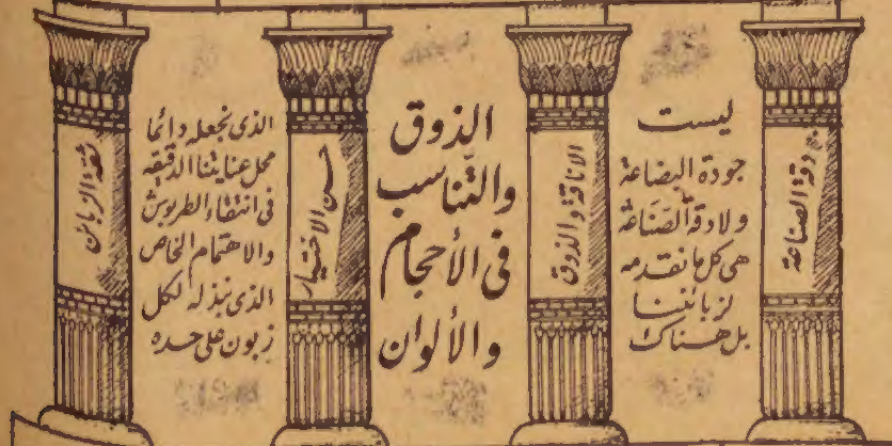 دقة الصناعة
ليست
جودة البضاعة
ولا دقة الصناعة
هى كل ما نقدمه
لزبائننا
بل هناك
الاناقة والذوق
الذوق
والتناسب
فى الأحجام
والألوان
حسن الاختيار
الذى نجعله دائما
محل عنايتنا الدقيقه
فى انتقاء الطربوش
والاهتمام الخاص
الذى نبذله لكل
زبون على حده
ثقة الزبائن